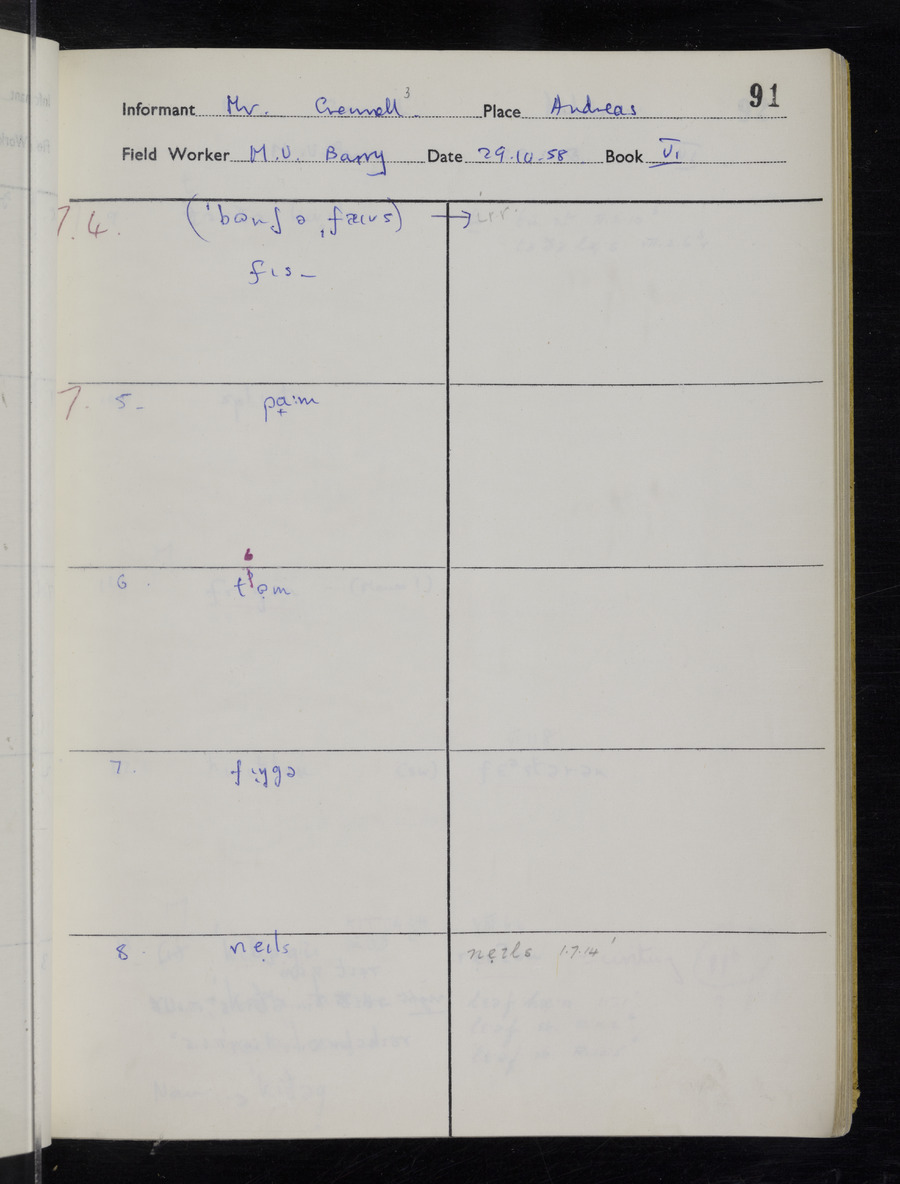 91
Informant Mr. Crennell 3 Place Andreas
Field Worker M.V. Barry Date 29.10.58 Book VI
7.4. (ˈbɔnʃ ə ˌfæɪvs) →
fɪs –
7. 5 – pa̟:m
6
6. tʰọm
7. fɪŋgə
8. nẹɪls nẹɪls 1.7.14